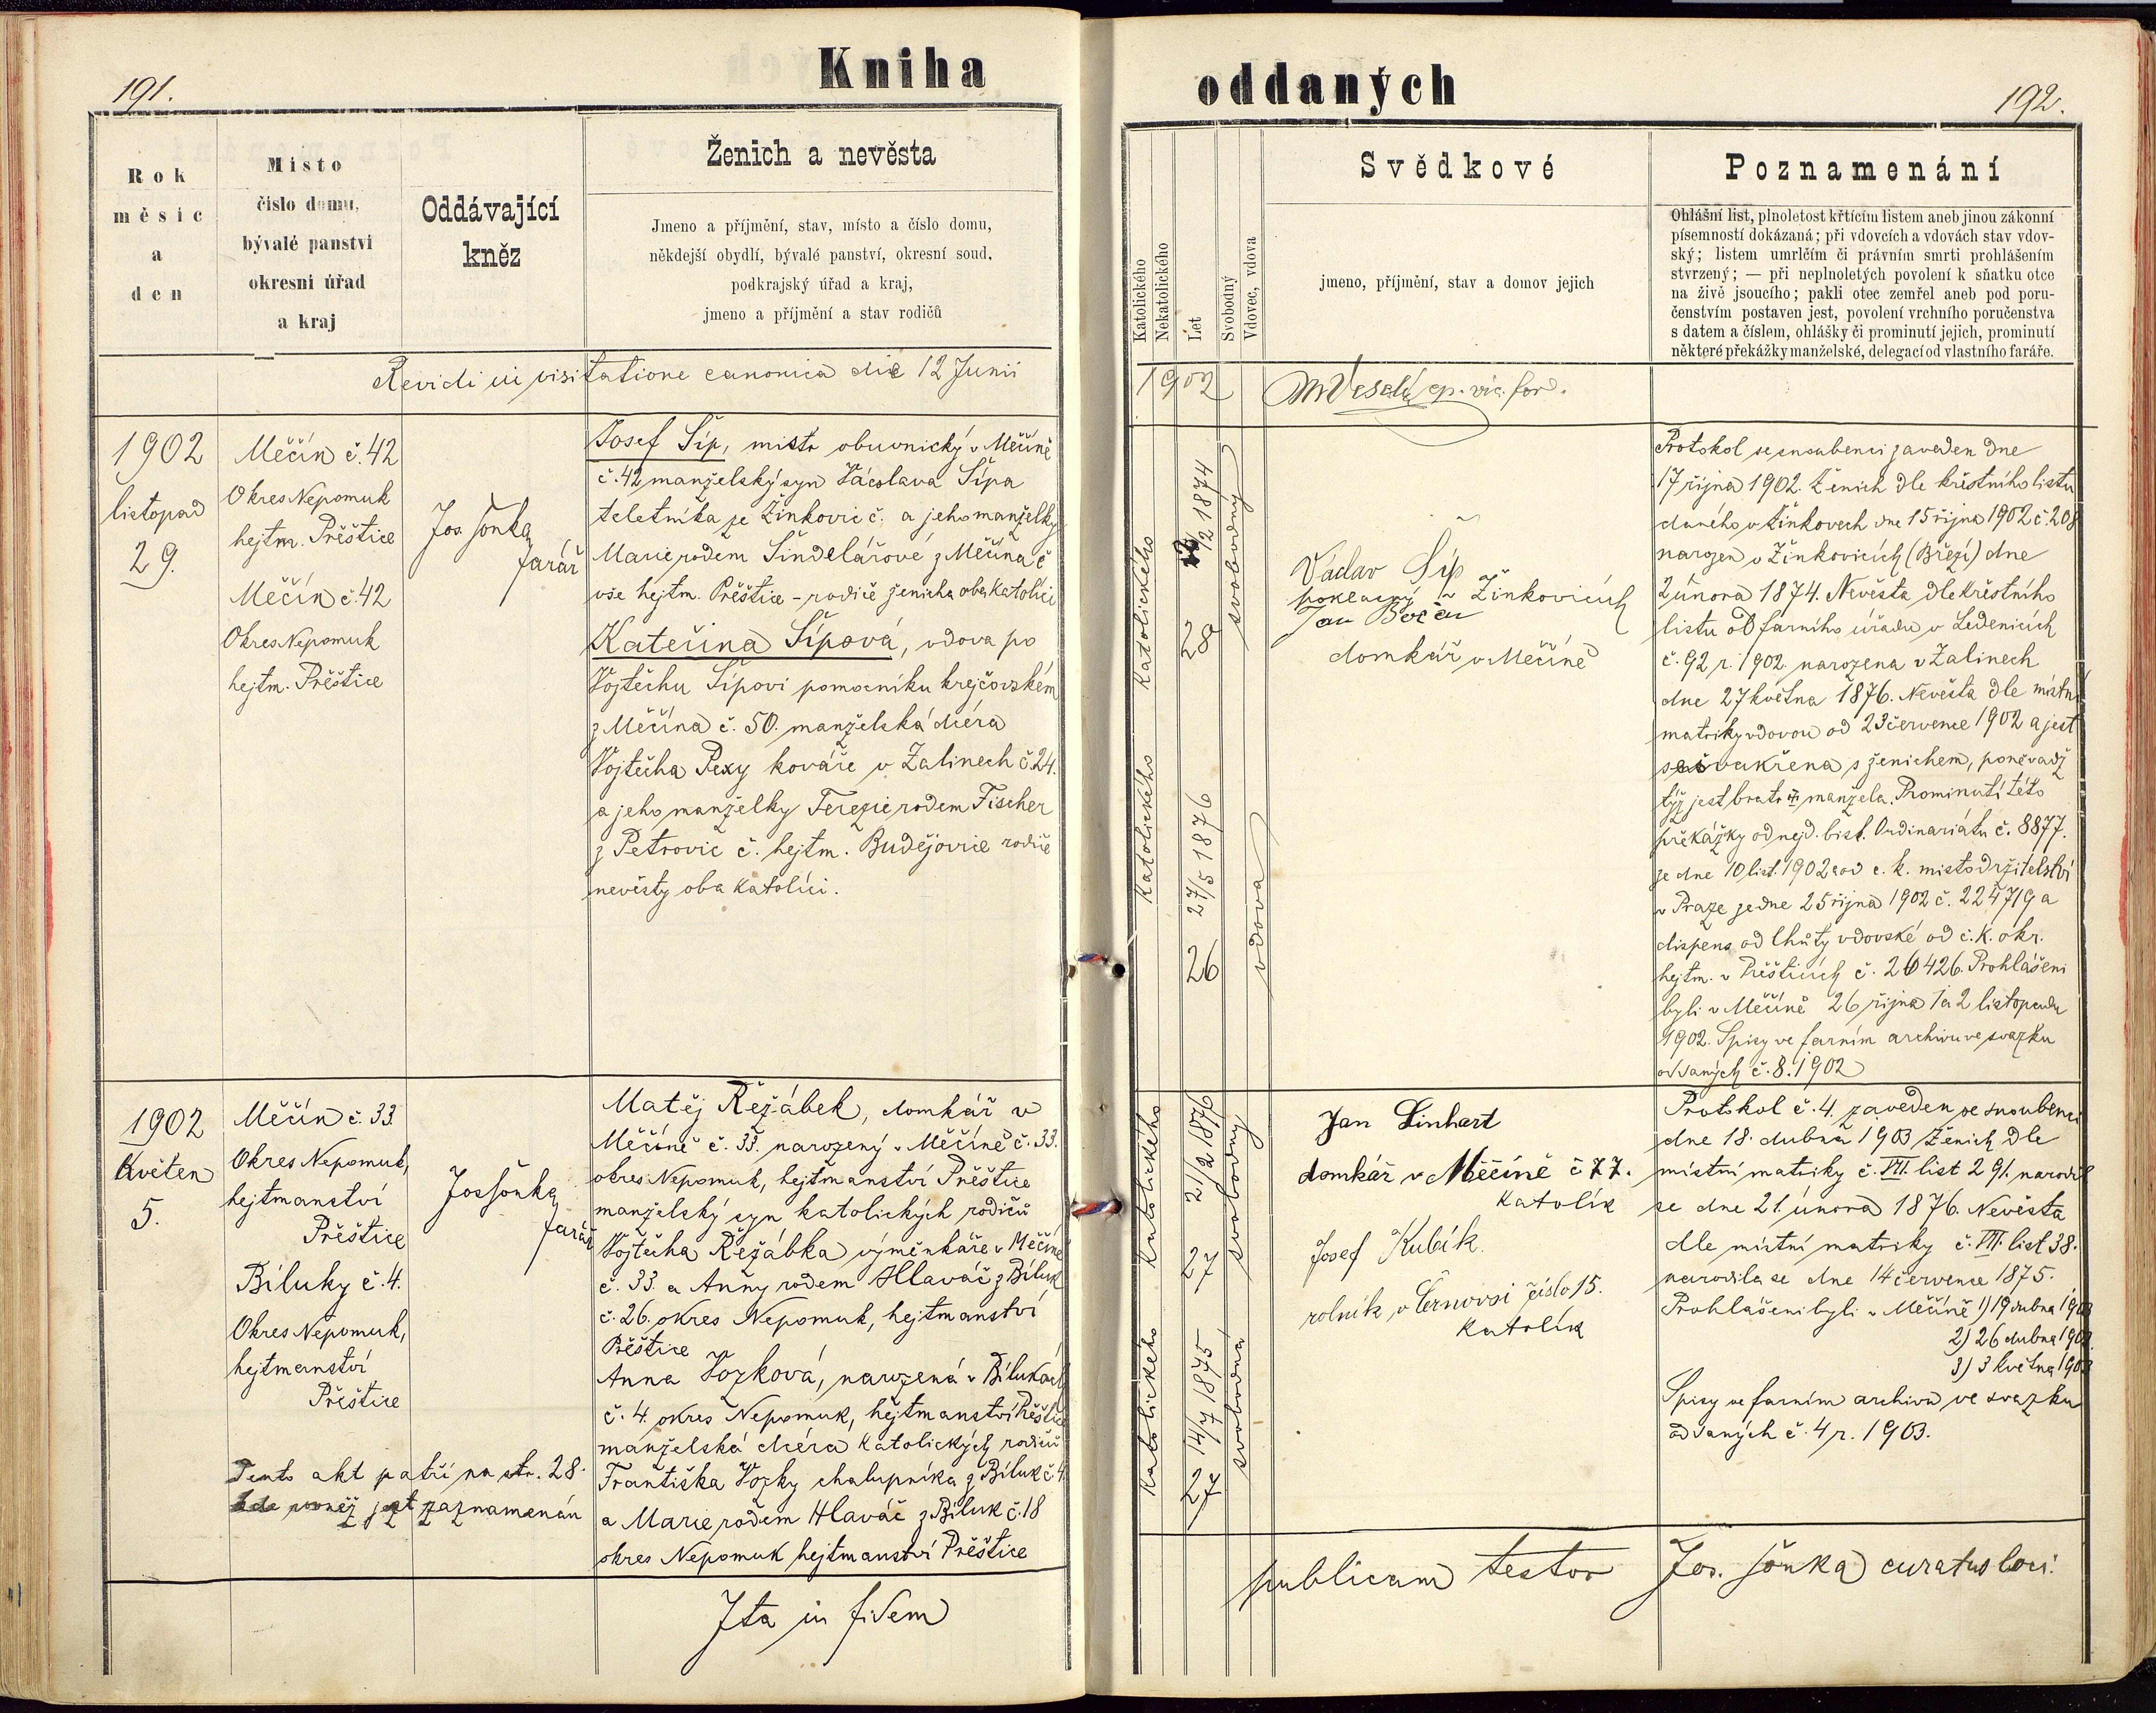 191.
Kniha
oddaných
192.
Rok
měsíc
a
den
Místo
číslo domu,
bývalé panství
okresní úřad
a kraj
Oddávající
kněz
Ženich a nevěsta
Jmeno a příjmění, stav, místo a číslo domu,
někdejší obydlí, bývalé panství, okresní soud,
podkrajský úřad a kraj,
jmeno a příjmění a stav rodičů
Katolického
Nekatolického
Let
Svobodný
Vdovec, vdova
Svědkové
jmeno, příjmění, stav a domov jejich
Poznamenání
Ohlášní list, plnoletost křtícím listem aneb jinou zákonní
písemností dokázaná; při vdovcích a vdovách stav vdov-
ský; listem umrlčím či právním smrti prohlášením
stvrzený; — při neplnoletých povolení k sňatku otce
na živě jsoucího; pakli otec zemřel aneb pod poru-
čenstvím postaven jest, povolení vrchního poručenstva
s datem a číslem, ohlášky či prominutí jejich, prominutí
některé překážky manželské, delegací od vlastního faráře.
Revidi in visitatione canonica die 12 Junii
1902
MVeselý ep. vic. for.
1902
listopad
29.
Měčín č. 42
Okres Nepomuk
hejtm. Přěštice
Měčín č. 42
Okres Nepomuk
hejtm. Přěštice
Jos. Jonka
farář
Josef Šíp, mistr obuvnický v Měčíně
č. 42 manželský syn Václava Šípa
teletníka ze Žinkovic č. a jeho manželky
Marie rodem Šindelářové z Měčína č
vše hejtm. Přěštice - rodiče ženicha oba katolíci
Kateřina Šípová, vdova po
Vojtěchu Šípovi pomocníku krejčovském
z Měčína č. 50. manželská dcéra
Vojtěcha Pexy kováře v Zalinech č. 24.
a jeho manželky Terezie rodem Fischer
z Petrovic č. hejtm. Budějovice rodiče
nevěsty oba katolíci.
Katolického
28
12 1874
svobodný
Katolického
26
27/5 1876
vdova
Václav Šíp
v Žinkovicích
Jan
domkář v Měčíně
Protokol se snoubenci zaveden dne
17 října 1902. Ženich dle křestního listu
daného v Žinkovech dne 15 října 1902 č. 208
narozen v Žinkovicích (Březí) dne
2 února 1874. Nevěsta dle křestního
listu od farního úřadu v Ledenicích
č. 92 r. 1902 narozena v Zalinech
dne 27 května 1876. Nevěsta dle místní
matriky vdovou od 23 července 1902 a jest
sešvakřena s ženichem, poněvadž
týž jest bratr manžela. Prominutí této
překážky od nejd. bisk. Ordinariátu č. 8877.
ze dne 10 list. 1902 a od c. k. místodržitelství
v Praze ze dne 25 října 1902 č. 224719 a
dispens od lhůty vdovské od c. k. okr.
hejtm. v Přěšticích č. 26426. Prohlášeni
byli v Měčíně 26 října 1 a 2 listopadu
1902. Spisy ve farním archivu ve svazku
oddaných č. 8. 1902
1902
Květen
5.
Měčín č. 33.
Okres Nepomuk,
hejtmanství
Přěštice
Bíluky č. 4.
Okres Nepomuk,
hejtmanství
Přěštice
Tento akt patří na str. 28.
kde rovněž jest zaznamenán
Jos Jonka
farář
Matěj Řežábek, domkář v
Měčíně č. 33. narozený v Měčíně č. 33.
okres Nepomuk, hejtmanství Přěštice
manželský syn katolických rodičů
Vojtěcha Řežábka výměnkáře v Měčíně
č. 33. a Anny rodem Hlaváč z Bíluk
č. 26. okres Nepomuk, hejtmanství
Přěštice
Anna Vozková, narozená v Bílukách
č. 4. okres Nepomuk, hejtmanství Přěštice
manželská dcéra katolických rodičů
Františka Vozky chalupníka z Bíluk č. 4
a Marie rodem Hlaváč z Bíluk č. 18
okres Nepomuk hejtmanství Přěštice
Katolického
27
21/2 1876
svobodný
Katolického
27
14/7 1875
svobodná
Jan Linhart
domkář v Měčíně č 77.
katolík
Josef Kubík.
rolník v Černovsi číslo 15.
katolík
Protokol č. 4. zaveden se snoubenci
dne 18. dubna 1903 Ženich dle
místní matriky č. VII. list 291. narodil
se dne 21. února 1876. Nevěsta
dle místní matriky č. VII. list 38.
narodila se dne 14 července 1875.
Prohlášeni byli v Měčíně 1) 19 dubna 1903
2) 26 dubna 1903.
3) 3 května 1903
Spisy ve farním archivu ve svazku
oddaných č. 4 r. 1903.
Ita in fidem
publicam testor
Jos. Jonka curatus loci.